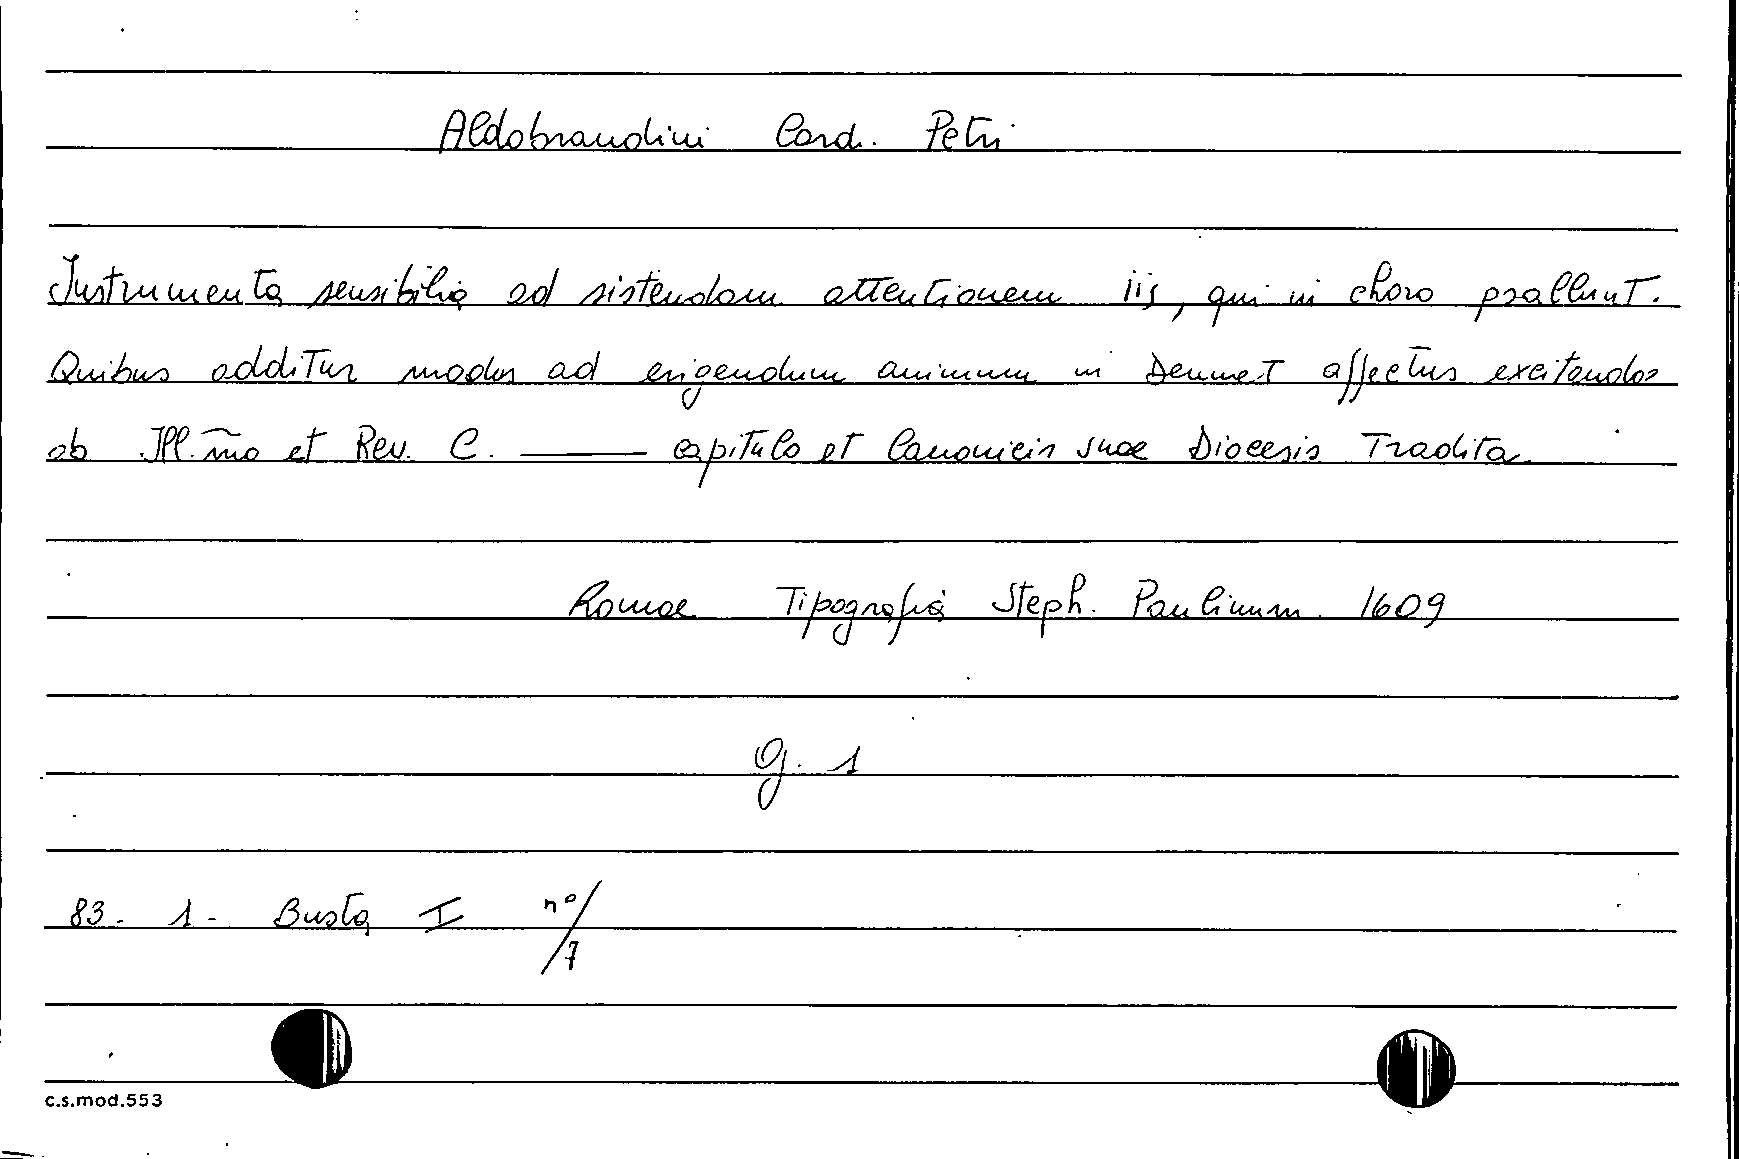 Aldobrandini Card. Petri
Instrumenta sensibilia ad sistendam attentionem iis, qui in choro psallunt.
Quibus additur modus ad erigendum animum in Deum et affectus excitandos
ab Ill.mo et Rev. C. ——— capitulo et Canonicis suae Diocesis Tradita
Romae Tipografia Steph. Paulinum 1609
g. 1
83 - 1 - Busta I n°/7
c.s.mod.553